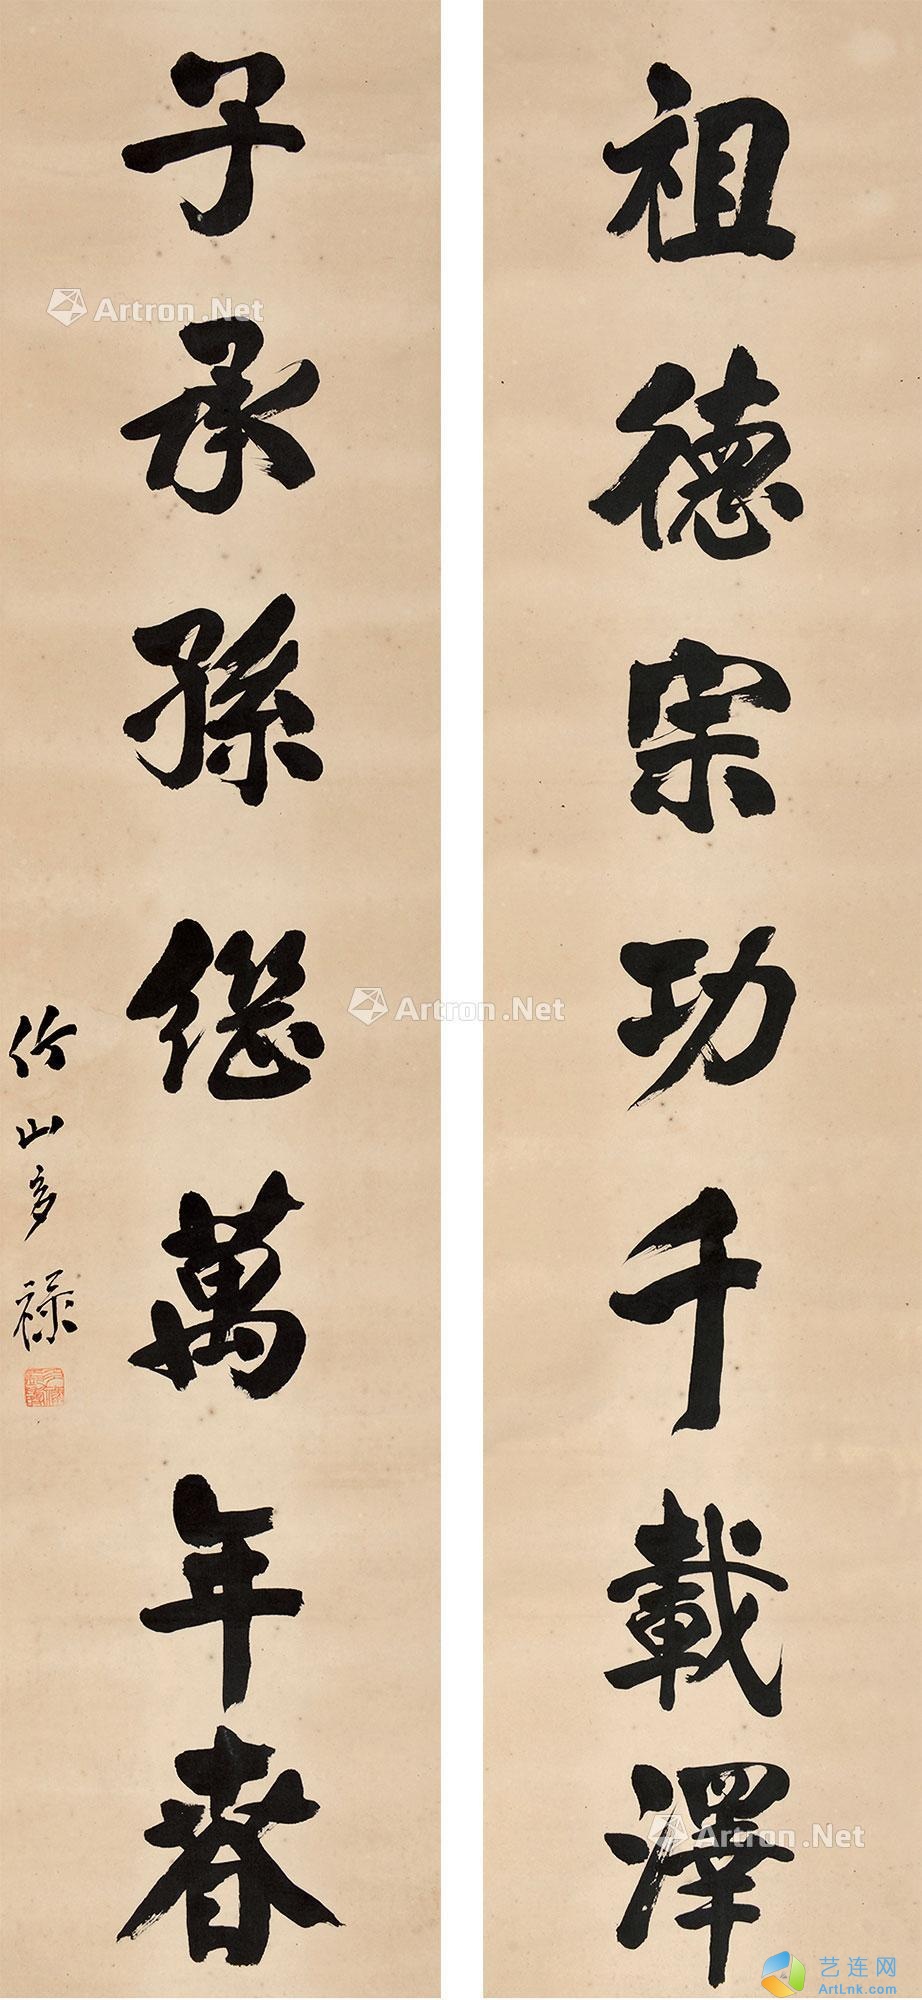 祖德宗功千載澤
子承孫継萬年春
竹山多禄
Artron.Net
Artron.Net
Artron.Net
艺连网
ArtLnk.com